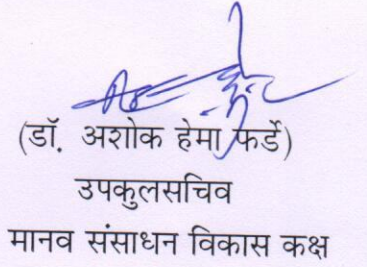 (डॉ. अशोक हेमा फर्डे)
उपकुलसचिव
मानव संसाधन विकास कक्ष